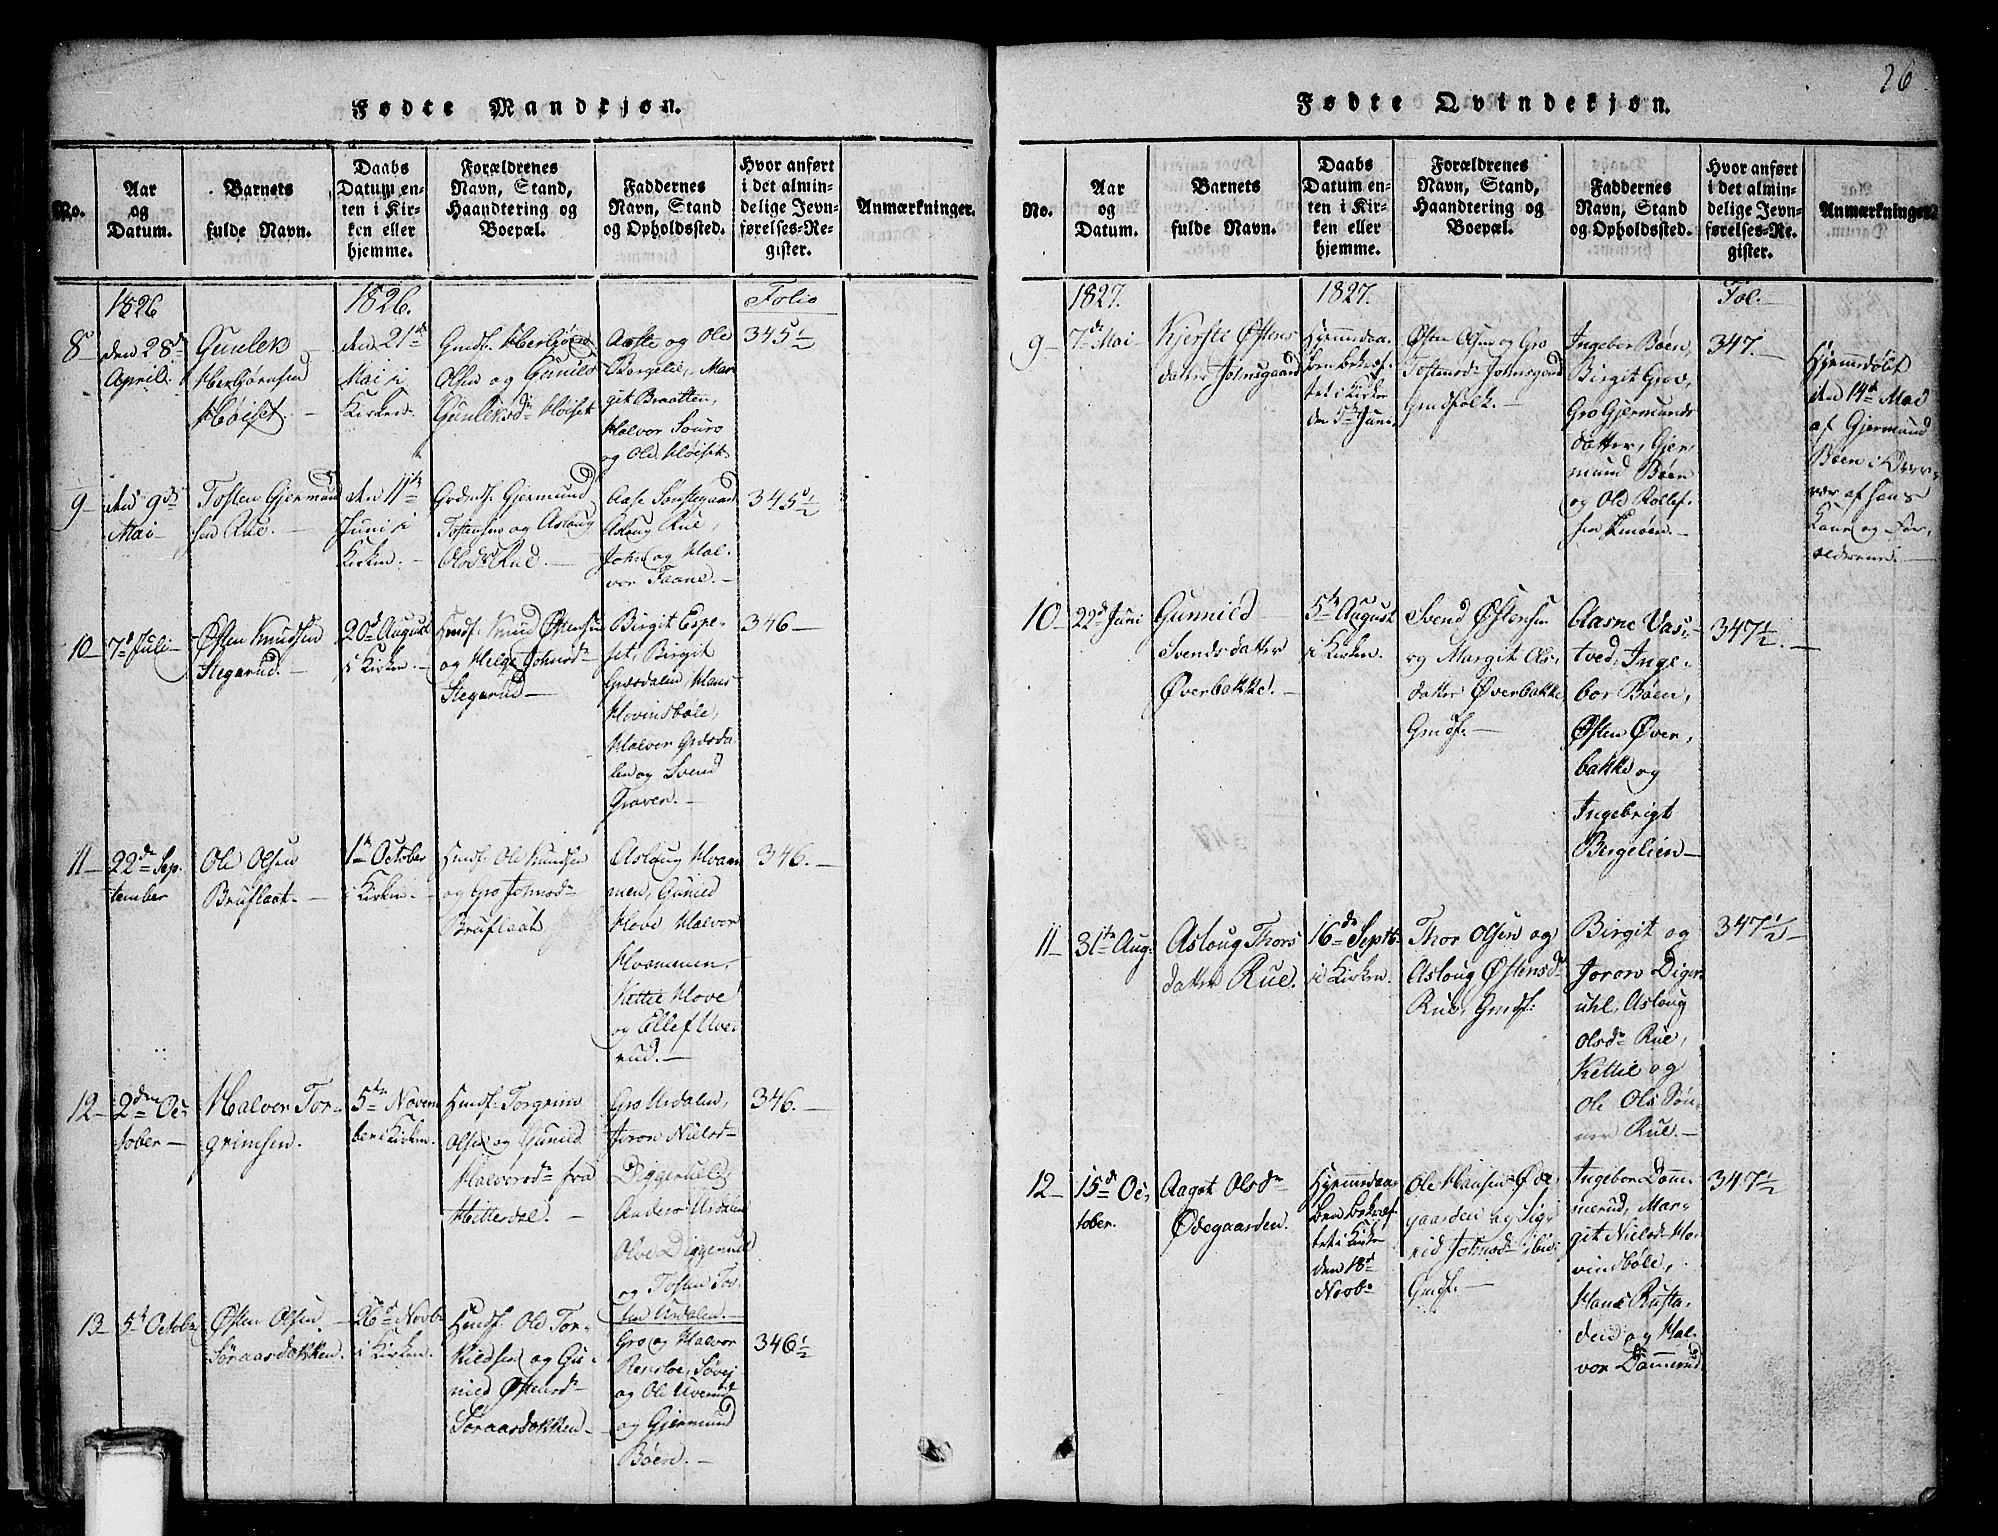 Fødte Mandkjøn.
No.
Aar
og
Datum.
Barnets
fulde Navn.
Daabs
Datum en-
ten i Kir-
ken eller
hjemme.
Forældrenes
Navn, Stand,
Haandtering og
Boepæl.
Faddernes
Navn, Stand
og Opholdssted.
Hvor anført
i det almin-
delige Jevn-
førelses-Re-
gister.
Anmærkninger.
1826
1826.
Folio
8
den 28de
April.
Gunlek
Herbjørnsen
Høiset.
den 21de
Mai i
Kirken.
Gmdf. Herbjørn
Olsen og Gunild
Gunleksdr Høiset
Aaste og Ole
Bergelie, Mar-
git Braatten,
Halvor
og Ole Høiset
345½
9
den 9de
Mai
Tosten Gjermund
sen Rue.
den 11te
Juni i
Kirken.
Gjermund
Tostensen og Aslaug
Olsdr Rue
Aase
Aslaug Rue,
John og Hal-
vor Faane.
345½
10
7de Juli
Østen Knudsen
Stegarud.
20de August
i Kirken.
Hmdf. Knud Østensen
og Helge Johnsdr
Stegarud
Birgit Espe-
set, Birgit
Græsdalen, Hans
Hovinsbøle,
Halvor Græsda-
len og Svend
Graver.
346
11
22de Sep-
tember
Ole Olsen
Bruflaat.
1te October
i Kirken.
Hmdf. Ole Knudsen
og Gro Johnsdr
Bruflaat
Aslaug Hvam-
men, Gunild
Hove Halvor
Hvammen,
Kettil Hove
og Ellef Uve-
rud.
346.
12
2den Oc-
tober
Halvor Tor-
grimsen.
5te Novem
ber i Kirken.
Hmdf. Torgrim
Olsen og Gunild
Halvorsdr fra
Hitterdal.
Gro Urdalen,
Joron Nielsdr
Diggeruld,
Anders Urdalen
Olve Diggeruld
og Tosten Tor-
sen Urdalen.
346.
13
5te October
Østen Olsen
Søraasdokken.
26de Novbr
i Kirken.
Hmdf. Ole Tor-
kildsen og Gu-
nild Østensdr
Søraasdokken
Gro og Halvor
Rensloe,
og Ole Uverud
og Gjermund
Bøen.
346½
26
Fødte Qvindekjøn.
No.
Aar
og
Datum.
Barnets
fulde Navn.
Daabs
Datum en-
ten i Kir-
ken eller
hjemme.
Forældrenes
Navn, Stand,
Haandtering og
Boepæl.
Faddernes
Navn, Stand
og Opholdssted.
Hvor anført
i det almin-
delige Jevn-
førelses-Re-
gister.
Anmærkninger.
1827.
1827.
Fol.
9
7de Mai
Kjersti Østens
datter Johnsgaard
Hjemmedaa-
ben bekræf-
tet i Kirken
den 5te Juni
Østen Olsen og Gro
Tostensdr Johnsgaard
Gmdfolk.
Ingebor Bøen,
Birgit Grov,
Gro Gjermunds
datter, Gjer-
mund Bøen
og Ole Rollef-
sen
347.
Hjemmedøbt
den 14de Mai
af Gjermund
Bøen i Overvæ-
relse af hans
Kone og For-
ældrene.
10
22de Juni
Gunnild
Svendsdatter
Øverbakke.
5te August
i Kirken.
Svend Østensen
og Margit As-
datter Øverbakke
Gmdf.
Aasne Vas-
tved, Inge-
bor Bøen,
Østen Øver-
bakke og
Ingebrigt
Bergelien
347½.
11
31te Aug.
Aslaug Thors
datter Rue.
16de Septb.
i Kirken.
Thor Olsen og
Aslaug Østensdr
Rue, Gmdf.
Birgit og
Joron Diger-
uhl, Aslaug
Olsdr Rue,
Kettil og
Ole Ols Søn-
ner Rue.
347½
12
15de Oc-
tober.
Aagot Olsdr
Ødegaarden.
Hjemmedaa-
ben bekræf-
tet i Kirken
den 18de
Novbr
Ole Hansen Øde-
gaarden og Sig-
rid Johnsdr ibid.
Gmdf.
Ingebor Døm-
merud, Mar-
git Nielsdr Ho-
vindbøle,
Hans Rusta-
den og Hal-
vor Dømmerud
347½